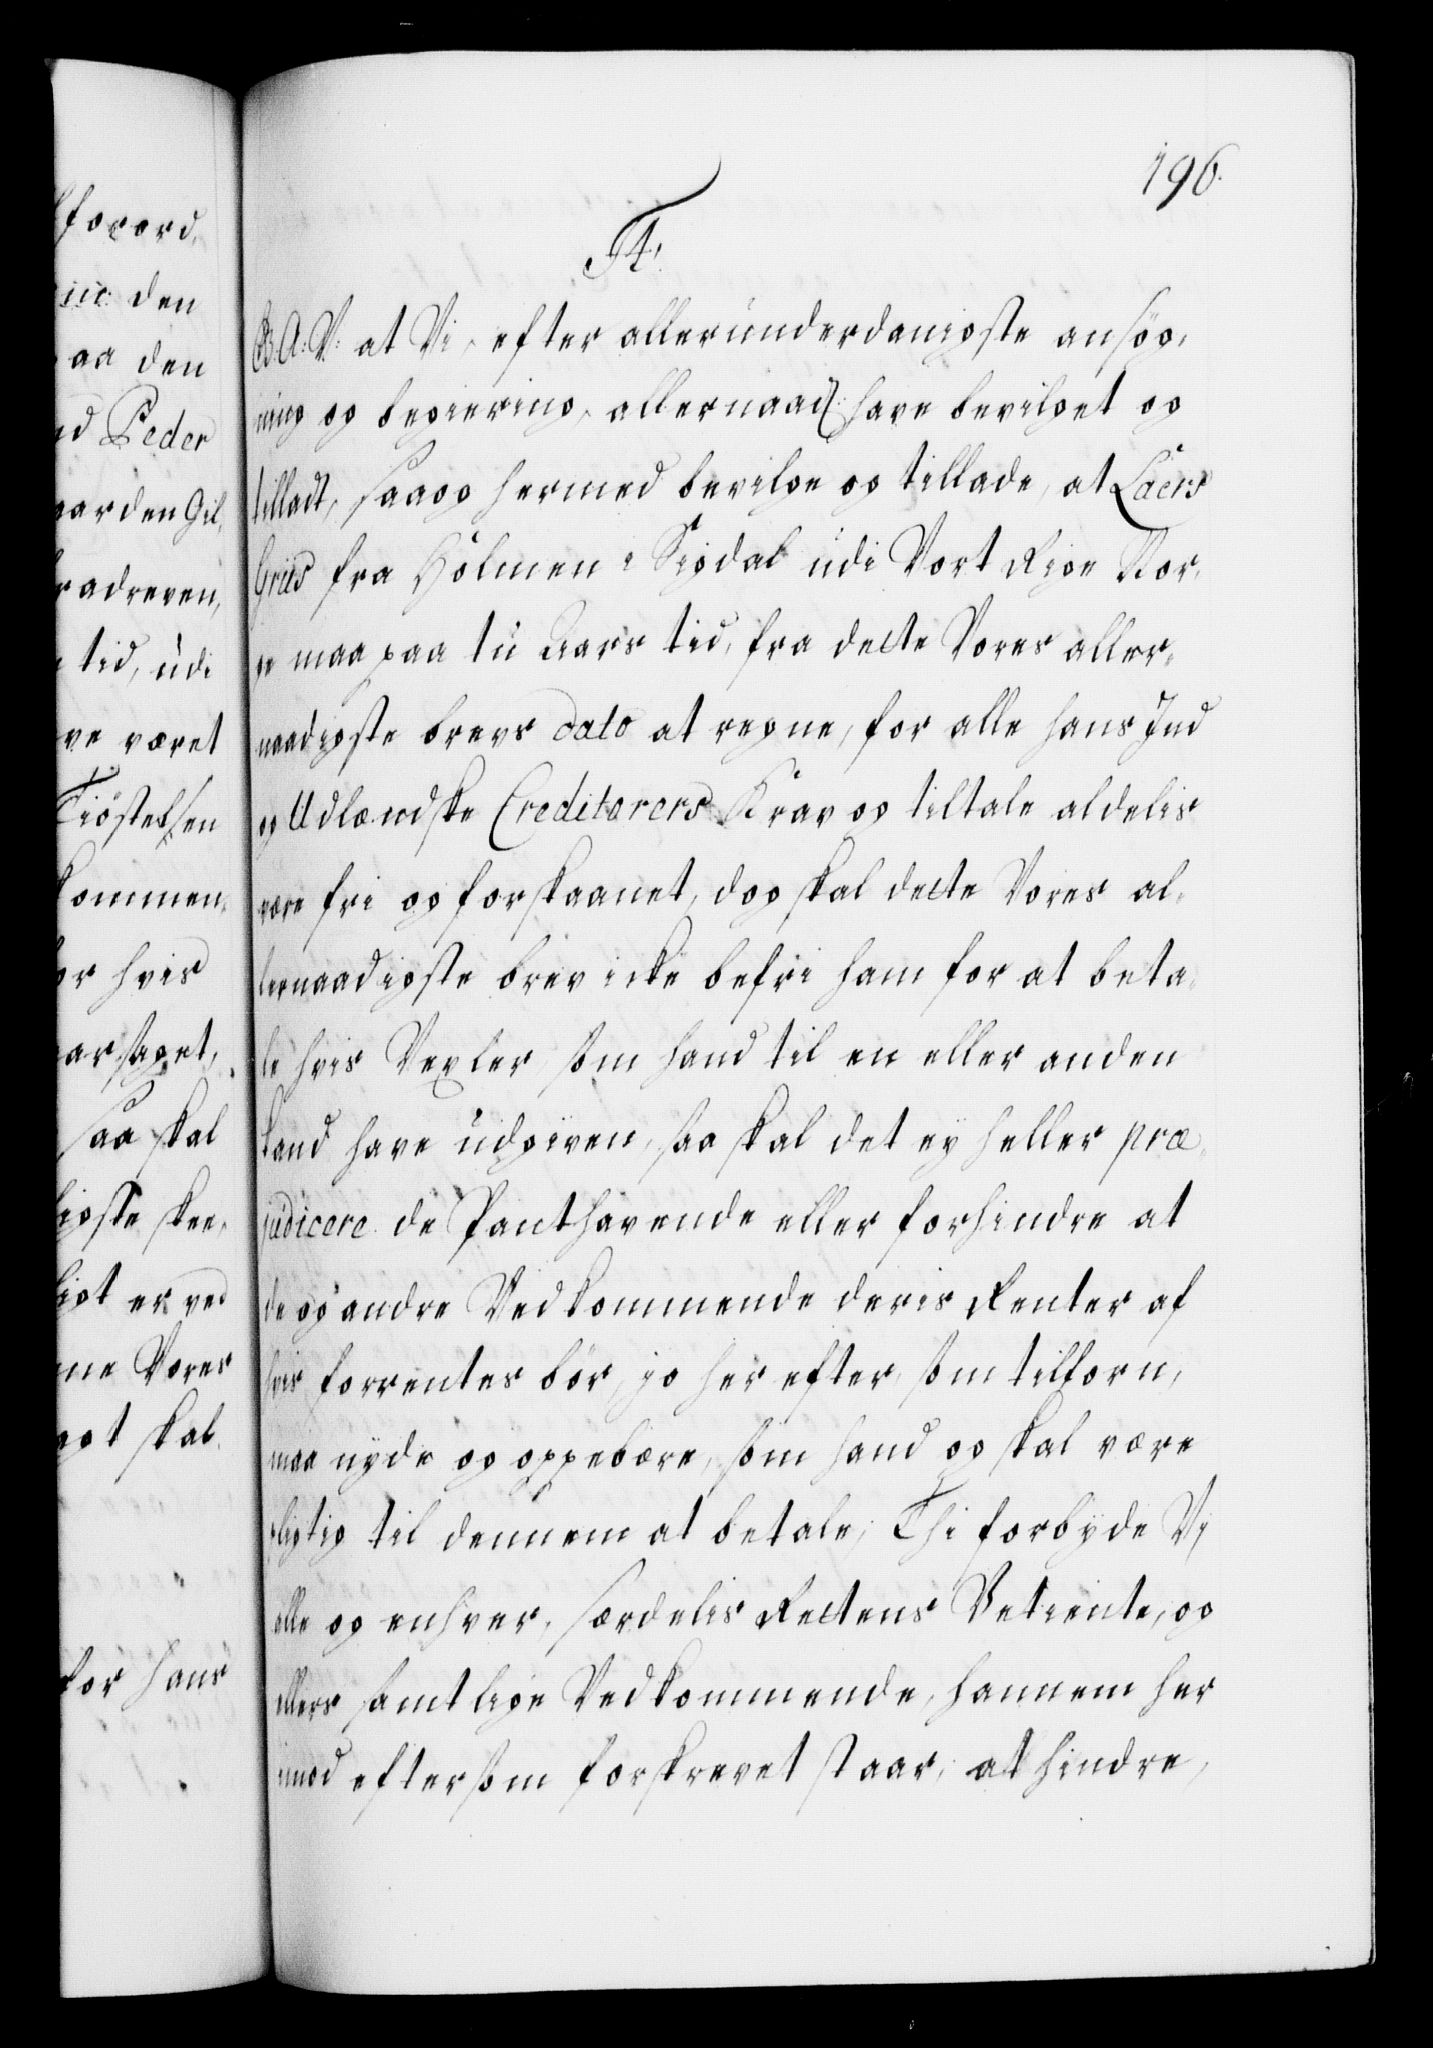 196.
F4.
G.A.V. at Vi, efter allerunderdanigste ansøg,
ning og begiering, allernaadst have bevilget og
tilladt, saa og hermed bevilge og tillade, at Laers
Griis fra Holmen i Sigdal udi Vort Rige Nor,
ge maa paa tu Aars tid, fra dette Vores aller,
naadigste brevs dato at regne, for alle hans Ind
og Udlændske Creditorers Krav og tiltale aldelis
være fri og forskaanet, dog skal dette Vores al,
lernaadigste brev icke befri ham for at beta,
le hvis Vexler, som hand til en eller anden
kand have udgiven, saa skal det ey heller præ,
judicere de Panthavende eller forhindre at
de og andre Vedkommende deris Renter af
hvis forrentes bør, jo her efter, som tilforn,
maa nyde og oppebære, som hand og skal være
pligtig til dennem at betale, Thi forbyde Vi
alle og enhver, særdelis Rettens Betiente, og
ellers samtlige Vedkommende, hannem her
imod eftersom forskrevet staar, at hindre,
forord,
den
aa den
Peder
aarden Gil,
adreven,
tid, udi
ve været
Tiøstelsen
kommen,
or hvis
aarsaget,
saa skal
ligste skee,
ligt er ved
ne Vores
agt skal.
for hans